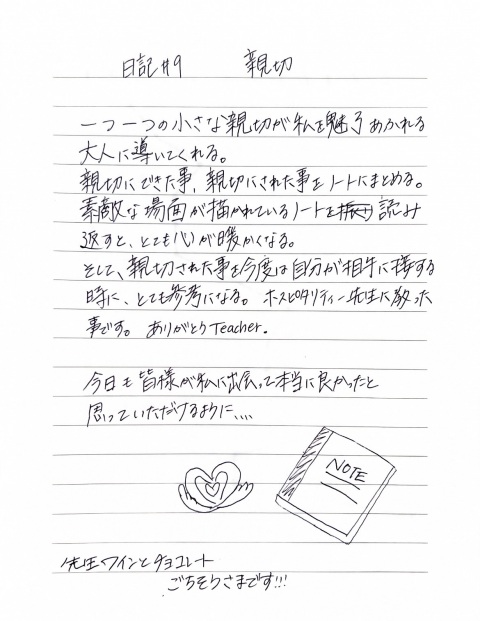 日記#9 親切
一つ一つの小さな親切が私を魅了あふれる
大人に導いてくれる。
親切にできた事、親切にされた事をノートにまとめる。
素敵な場面が描かれているノートを読み
返すと、とても心が暖かくなる。
そして、親切された事を今度は自分が相手に接する
時に、とても参考になる。ホスピタリティー先生に教った
事です。ありがとうTeacher.
今日も皆様が私に出会って本当に良かったと
思っていただけるように、、、、
NOTE
先生ワインとチョコレート
ごちそうさまです!!!